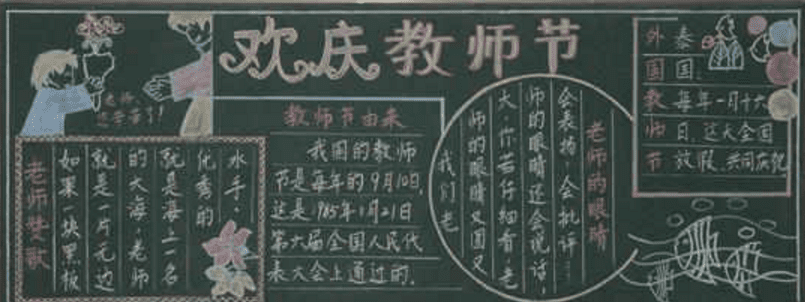 欢庆教师节
老师,
您辛苦了!
老师赞歌
如果一块黑板
就是一片无边
的大海,老师
就是海上一名
优秀的
水手.
教师节由来
我国的教师
节是每年的9月10日,
这是1985年1月21日
第六届全国人民代
表大会上通过的.
老师的眼睛
我们老
师的眼睛又圆又
大,你若仔细看,老
师的眼睛还会说话,
会表扬,会批评…
外国教师节
泰国:
每年一月十六
日,这天全国
放假,共同庆祝